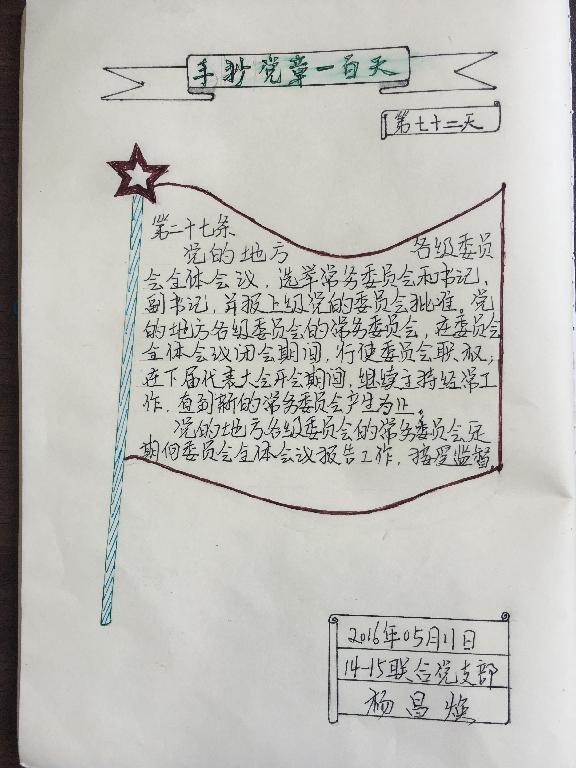 手抄党章一百天
第七十二天
第二十七条
党的地方 各级委员
会全体会议，选举常务委员会和书记、
副书记，并报上级党的委员会批准。党
的地方各级委员会的常务委员会，在委员会
全体会议闭会期间，行使委员会职权；
在下届代表大会开会期间，继续主持经常工
作，直到新的常务委员会产生为止。
党的地方各级委员会的常务委员会定
期向委员会全体会议报告工作，接受监督。
2016年05月11日
14-15联合党支部
杨昌焕